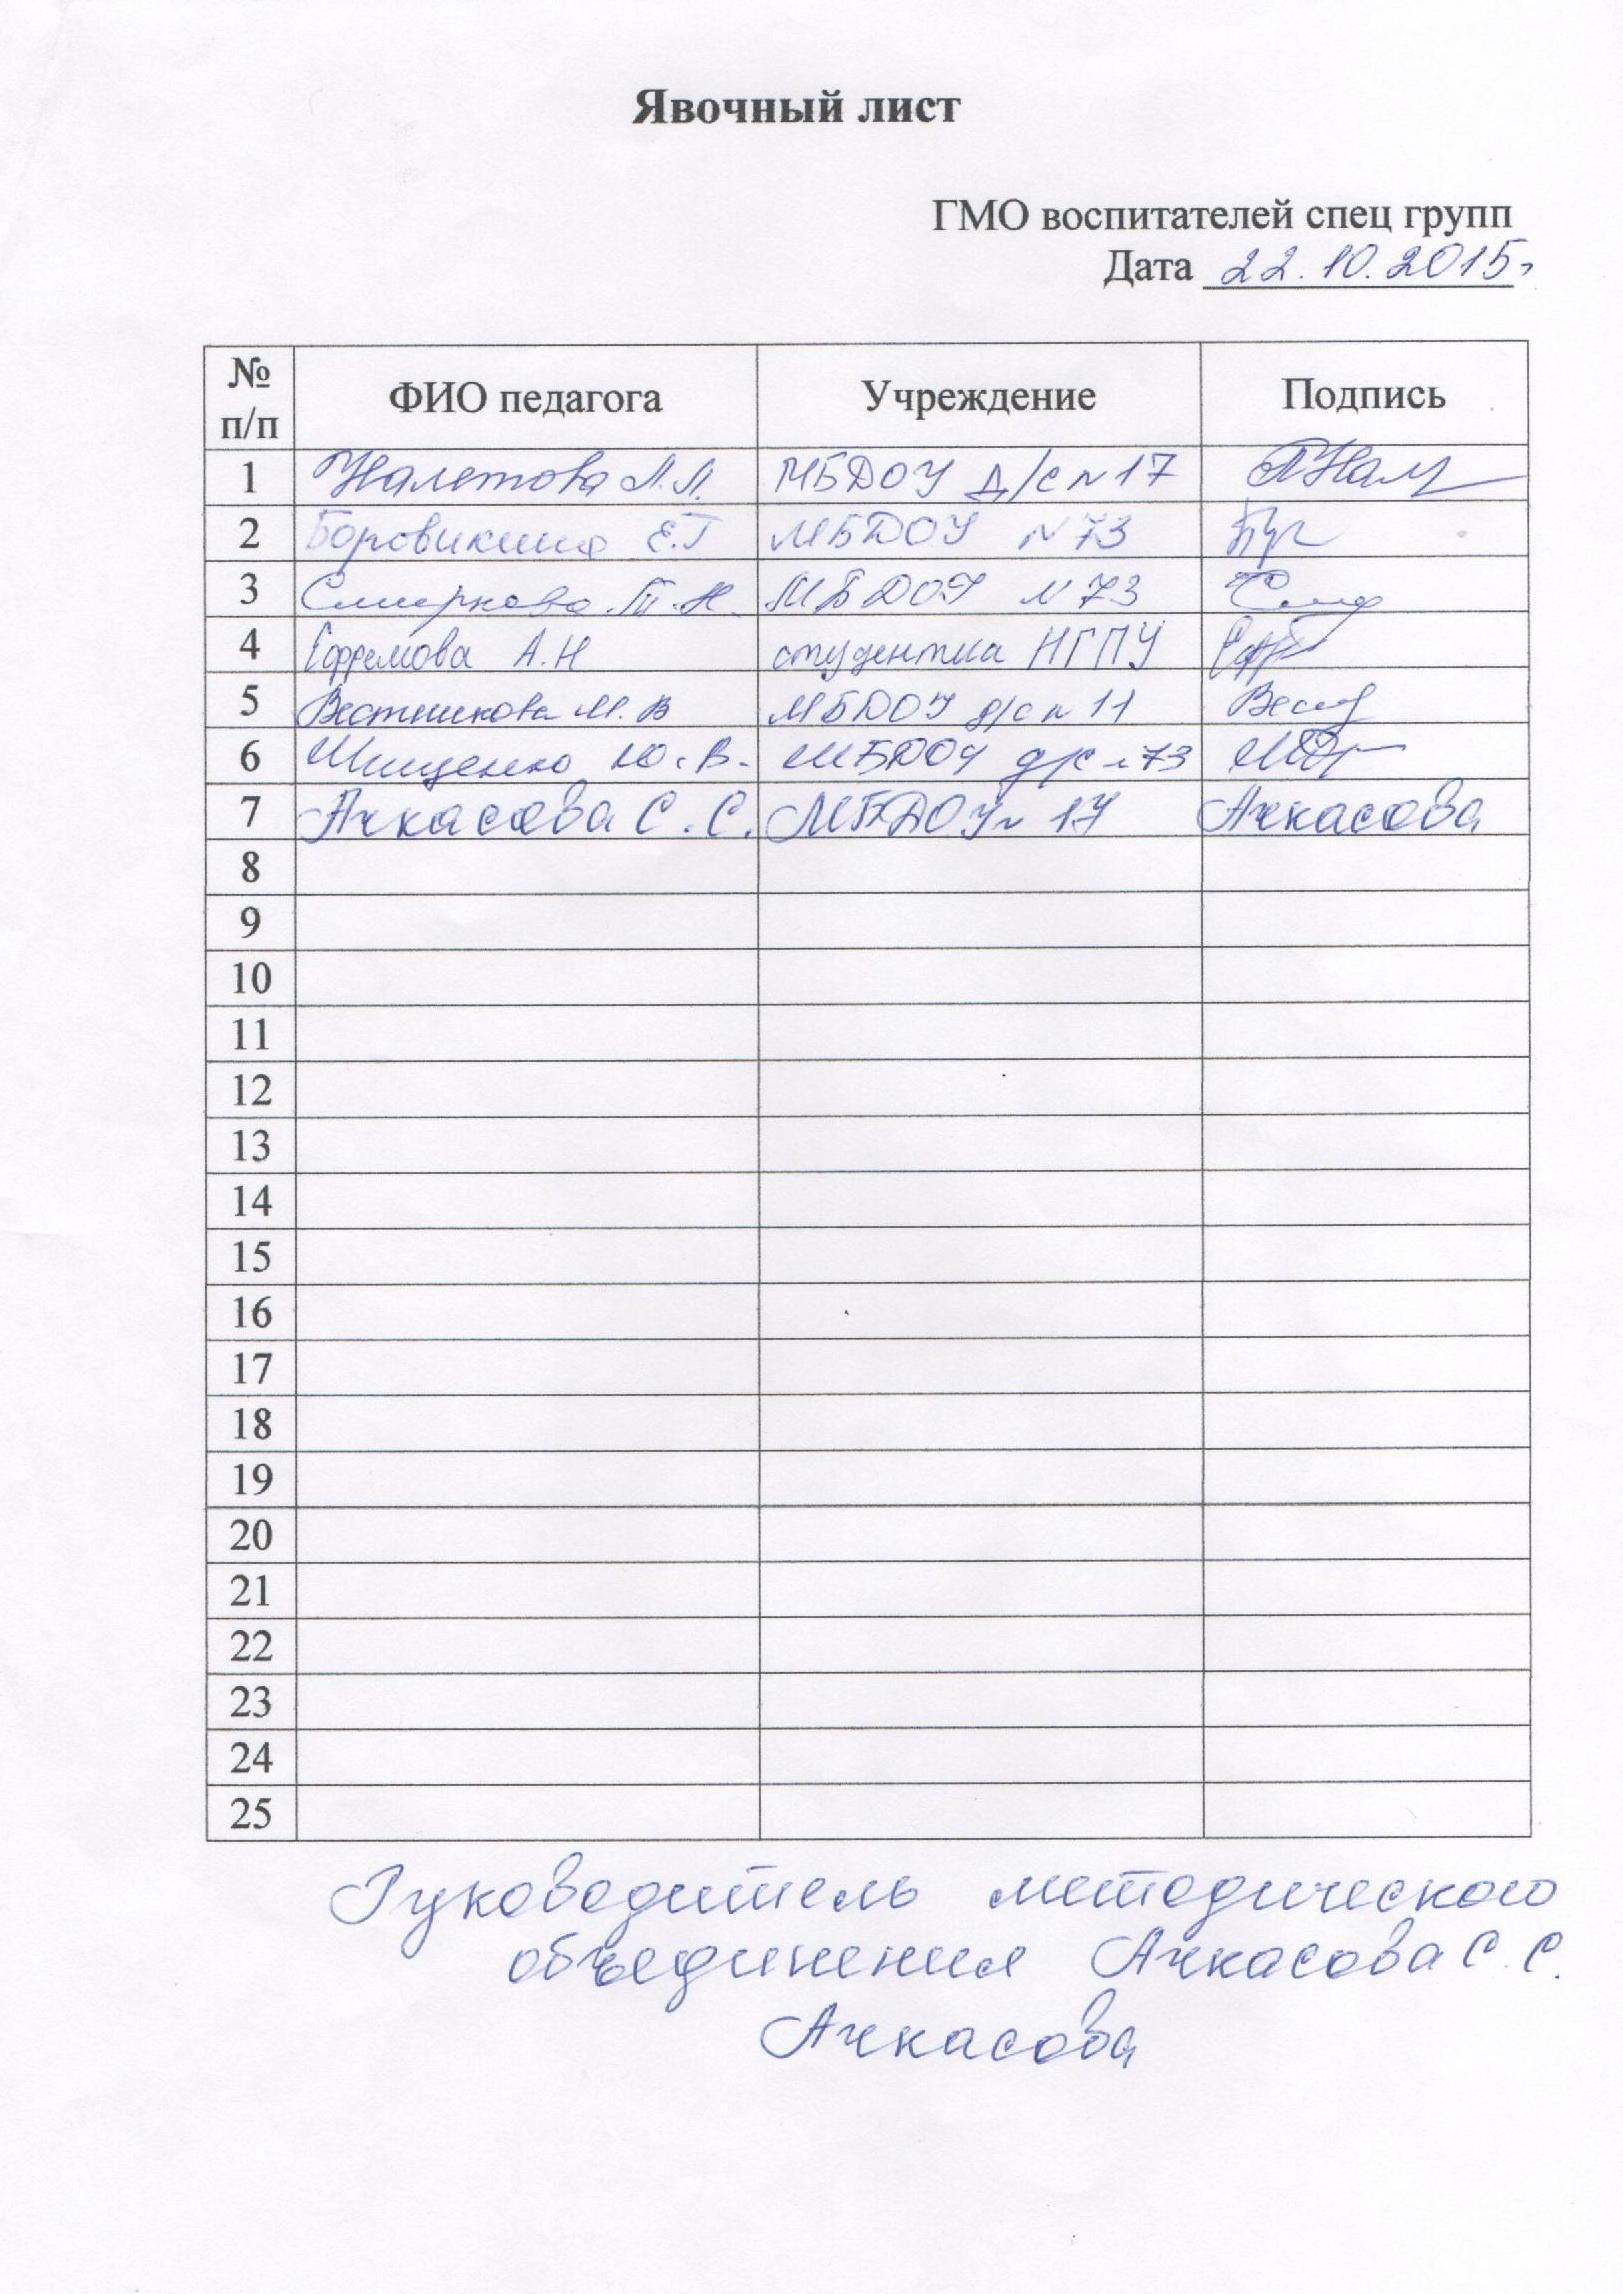 Явочный лист
ГМО воспитателей спец групп
Дата 22.10.2015г
№ п/п ФИО педагога Учреждение Подпись
1 Налетова Л.Л. МБДОУ д/с №17
2 Боровикина Е.Г МБДОУ №73
3 Смирнова Т.Н. МБДОУ №73
4 Ефремова А.Н студентка НГПУ
5 М.В МБДОУ д/с №11
6 Ю.В. МБДОУ д/с №73
7 Ачкасова С.С. МБДОУ№ 17 Ачкасова
8
9
10
11
12
13
14
15
16
17
18
19
20
21
22
23
24
25
Руководитель методического
объединения Ачкасова С.С.
Ачкасова